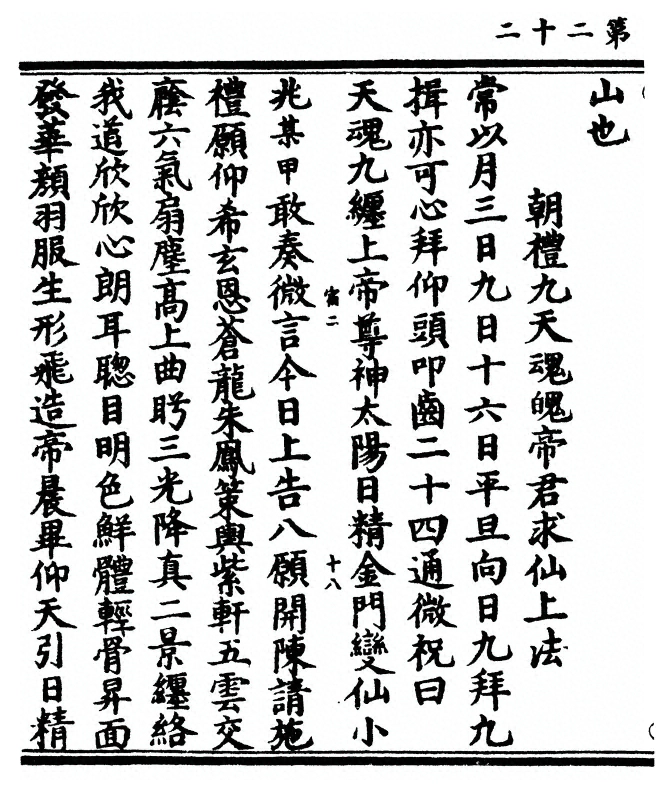 第二十二
山也
朝禮九天魂魄帝君求仙上法
常以月三日九日十六日平旦向日九拜九
揖亦可心拜仰頭叩齒二十四通微祝曰
天魂九纏上帝尊神太陽日精金門變仙小
兆某甲敢奏微言今日上告八願開陳請施
甯二
十八
禮願仰希玄恩蒼龍朱鳳策輿紫軒五雲交
蔭六氣扇塵高上曲眄三光降真二景纏絡
我道欣欣心朗耳聰目明色鮮體輕骨昇面
發華顏羽服生形飛造帝晨畢仰天引日精